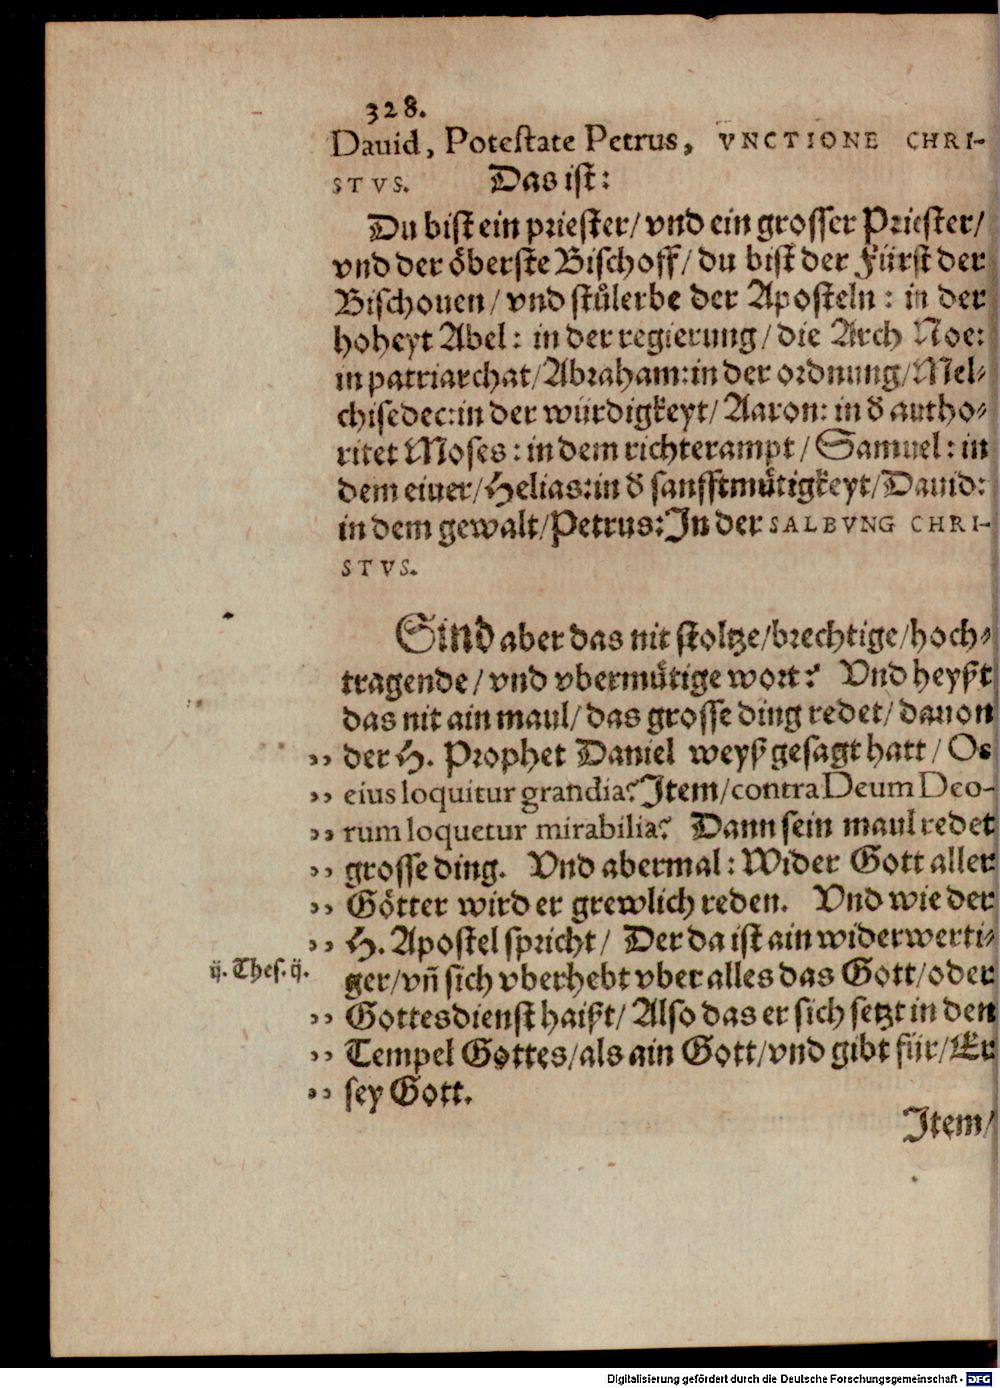 328.
Dauid, Poteſtate Petrus, VNCTIONE CHRI-
STVS. Das iſt:
Du biſt ein prieſter/ vnd ein groſſer Prieſter/
vnd der oͤberſte Biſchoff/ du biſt der Fürſt der
Biſchouen/ vnd ſtuͤlerbe der Apoſteln: in der
hoheyt Abel: in der regierung/ die Arch Noe:
in patriarchat/ Abraham: in der ordnung/ Mel⸗
chiſedec: in der würdigkeyt/ Aaron: in đ autho⸗
ritet Moſes: in dem richterampt/ Samuel: in
dem eiuer/ Helias: in đ ſanfftmuͤtigkeyt/ Dauid:
in dem gewalt/ Petrus: In der SALBVNG CHRI-
STVS.
Sind aber das nit ſtoltze/ brechtige/ hoch⸗
tragende/ vnd vbermuͤtige wort? Vnd heyſt
das nit ain maul/ das groſſe ding redet/ dauon
„ der H. Prophet Daniel weyßgeſagt hatt/ Os
„ eius loquitur grandia? Item/ contra Deum Deo-
„ rum loquetur mirabilia? Dann ſein maul redet
„ groſſe ding. Vnd abermal: Wider Gott aller
„ Goͤtter wird er grewlich reden. Vnd wie der
„ H. Apoſtel ſpricht/ Der da iſt ain widerwerti⸗
ij. Theſ. ij. ger/ vñ ſich vberhebt vber alles das Gott/ oder
„ Gottesdienſt haißt/ Alſo das er ſich ſetzt in den
„ Tempel Gottes/ als ain Gott/ vnd gibt für/ Er
„ ſey Gott.
Item/
Digitalisierung gefördert durch die Deutsche Forschungsgemeinschaft - DFG